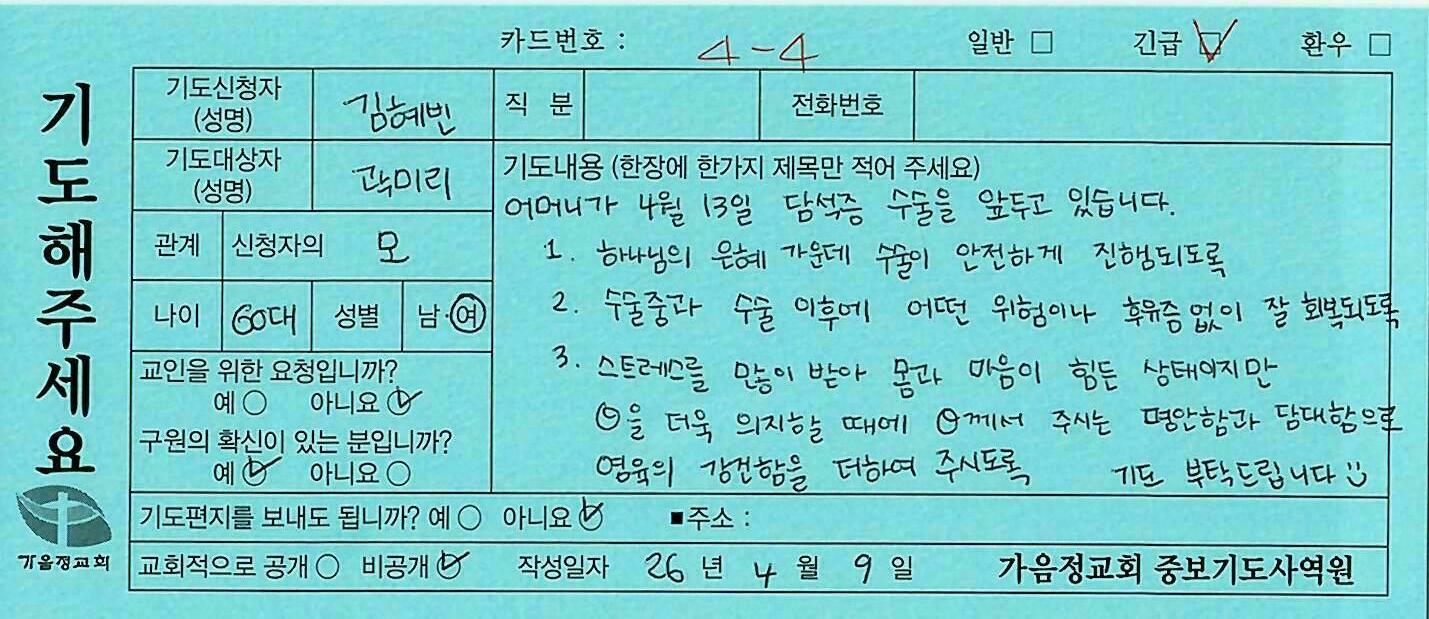 카드번호 : 4-4 일반 □ 긴급 ☑ 환우 □
기도해주세요
가음정교회
기도신청자 (성명) 김혜빈 직 분 전화번호
기도대상자 (성명) 곽미리
관계 신청자의 모
나이 60대 성별 남·여
교인을 위한 요청입니까?
예 ○ 아니요 ☑
구원의 확신이 있는 분입니까?
예 ☑ 아니요 ○
기도내용 (한장에 한가지 제목만 적어 주세요)
어머니가 4월 13일 담석증 수술을 앞두고 있습니다.
1. 하나님의 은혜 가운데 수술이 안전하게 진행되도록
2. 수술중과 수술 이후에 어떤 위험이나 후유증 없이 잘 회복되도록
3. 스트레스를 많이 받아 몸과 마음이 힘든 상태이지만
을 더욱 의지할 때에 께서 주시는 평안함과 담대함으로
영육의 강건함을 더하여 주시도록 기도 부탁드립니다
기도편지를 보내도 됩니까? 예 ○ 아니요 ☑ ■주소 :
교회적으로 공개 ○ 비공개 ☑ 작성일자 26 년 4 월 9 일 가음정교회 중보기도사역원